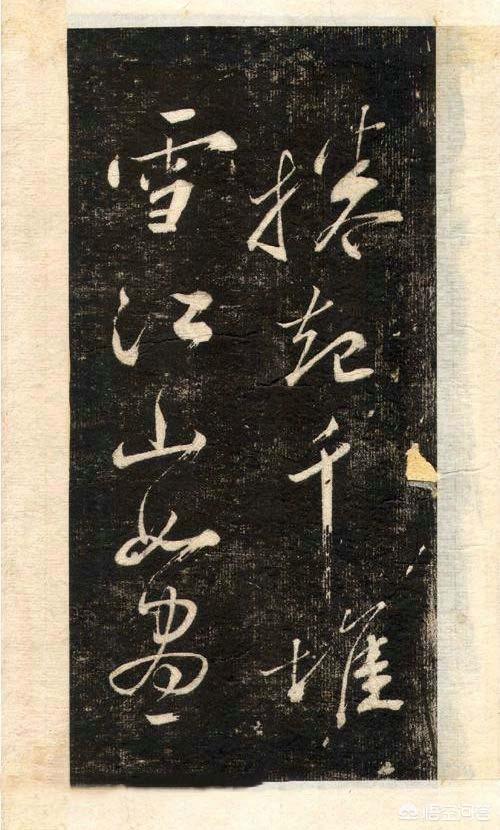 捲起千堆
雪江山如畫
悟空问答